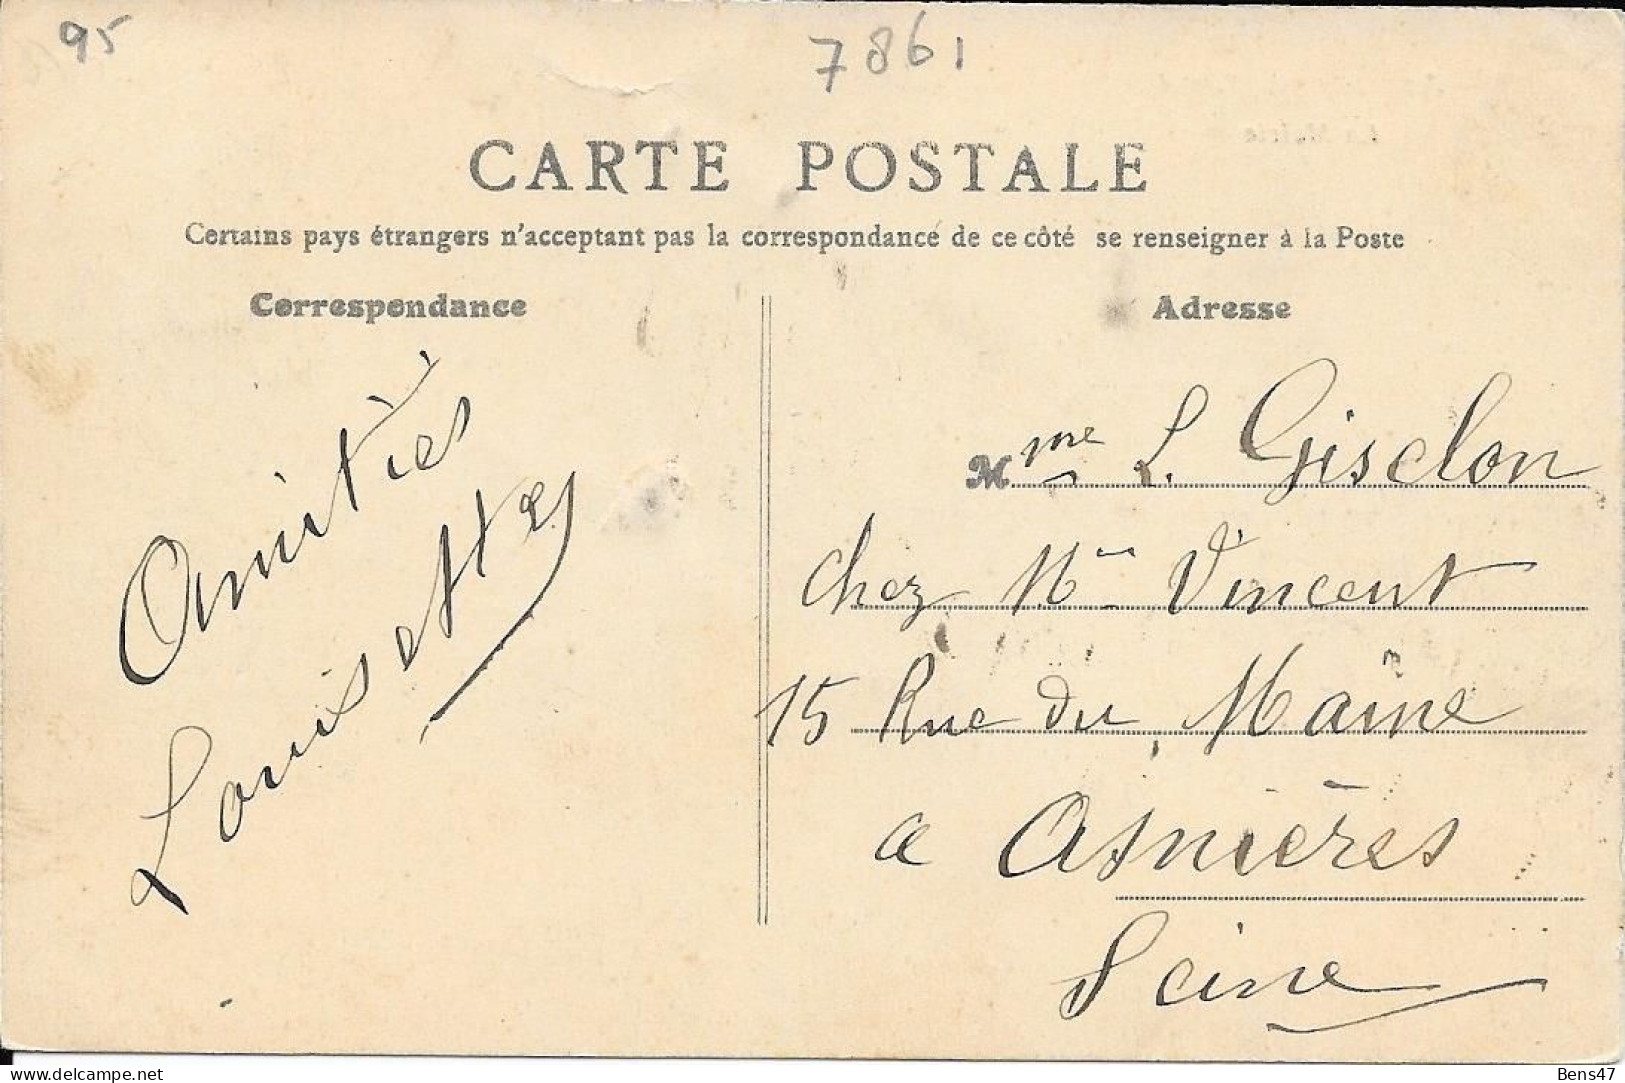 95
7861
CARTE POSTALE
Certains pays étrangers n'acceptant pas la correspondance de ce côté se renseigner à la Poste
Correspondance
Adresse
Amitiés
Louisette
Mme L. Gisclon
chez Mme Vincent
15 Rue du Maine
a Asnières
Seine
delcampe.net
Bens47